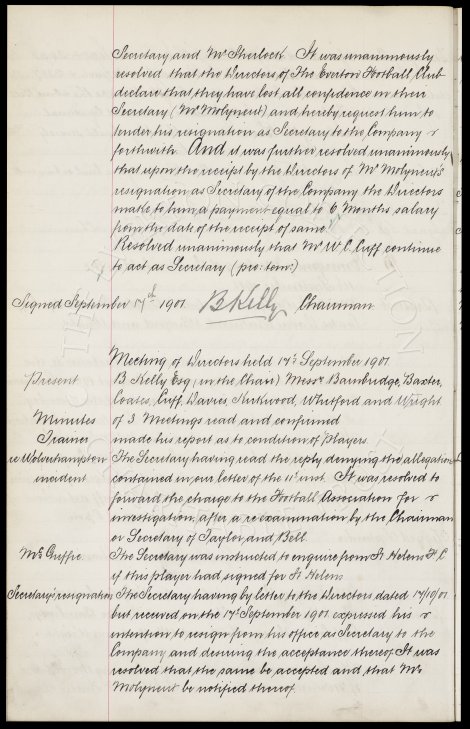 Secretary and Mr Sherlock. It was unanimously
resolved that the Directors of The Everton Football Club
declare that they have lost all confidence in their
Secretary (Mr Molyneux) and hereby request him to
tender his resignation as Secretary to the Company &
forthwith. And it was further resolved unanimously
that upon the receipt by the Directors of Mr Molyneux's
resignation as Secretary of the Company the Directors
make to him a payment equal to 6 Months salary
from the date of the receipt of same.
Resolved unanimously that Mr W. C. Cuff continue
to act as Secretary (pro: tem:)
Signed September 17th 1901 B Kelly Chairman
Meeting of Directors held 17th September 1901
Present B Kelly Esq (in the Chair) Messrs Bainbridge, Baxter,
Coates, Cuff, Davies, Kirkwood, Whitford and Wright
Minutes of 3 Meetings read and confirmed
Trainer made his report as to condition of Players.
re Wolverhampton The Secretary having read the reply denying the allegations
incident contained in our letter of the 11th inst. It was resolved to
forward the charge to the Football Association for &
investigation, after a re examination by the Chairman
or Secretary of Taylor and Bell.
McGuffie The Secretary was instructed to enquire from St Helens F. C
if this player had signed for St Helens
Secretary's resignation The Secretary having by letter to the Directors dated 17/9/01
but received on the 17th September 1901 expressed his &
intention to resign from his office as Secretary to the
Company and desiring the acceptance thereof It was
resolved that the same be accepted and that Mr
Molyneux be notified thereof.